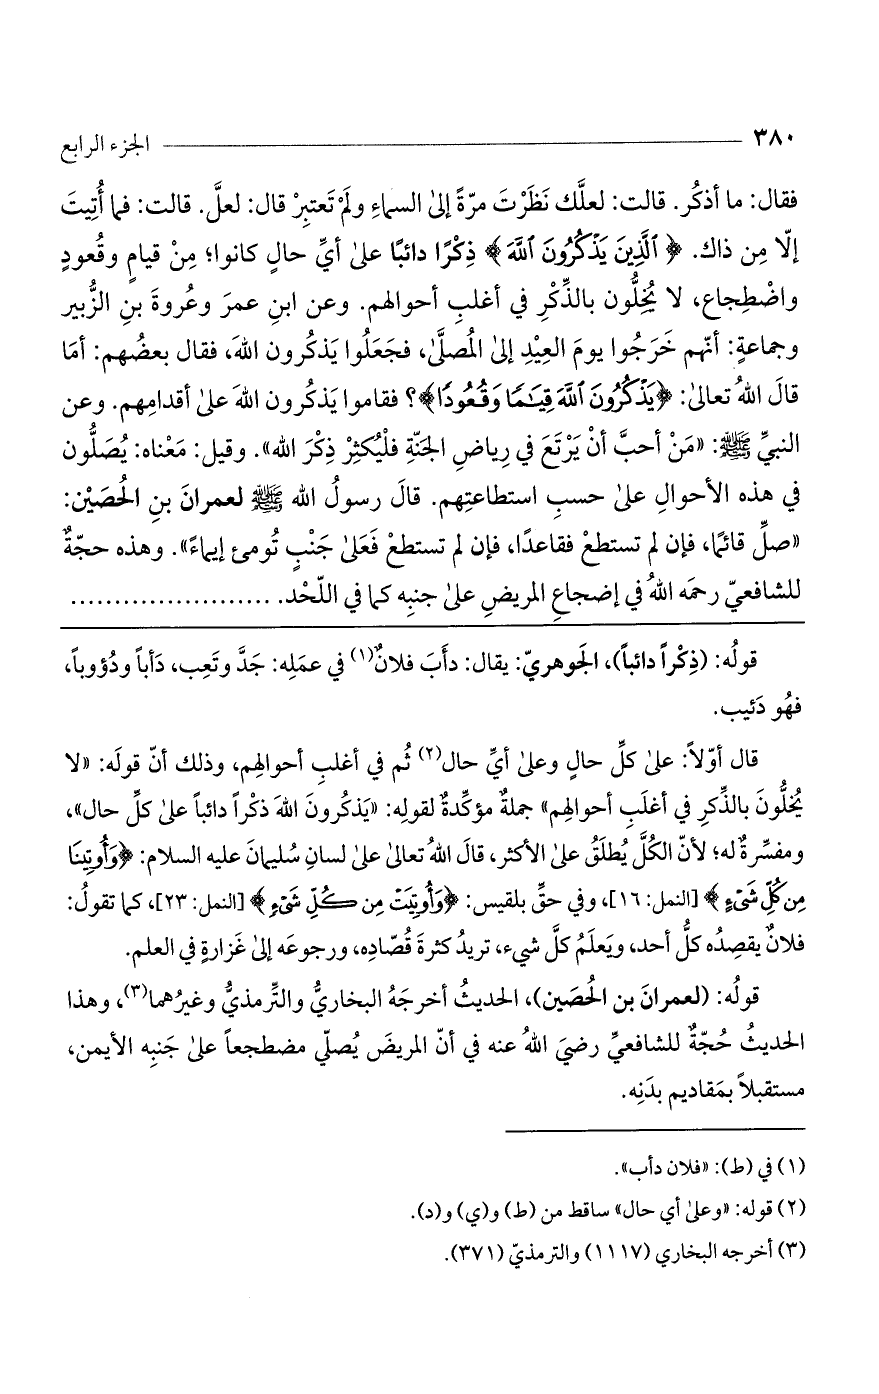 ٣٨٠ الجزء الرابع
فقال: ما أذكُر. قالت: لعلَّك نَظَرْتَ مرّةً إلىٰ السماءِ ولَمْ تَعتبِرْ قال: لعلَّ. قالت: فما أُتِيتَ
إلّا مِن ذاك. ﴿ ٱلَّذِينَ يَذْكُرُونَ ٱللَّهَ ﴾ ذِكْرًا دائبًا علىٰ أيِّ حالٍ كانوا؛ مِنْ قيامٍ وقُعودٍ
واضْطِجاع، لا يُخِلُّون بالذِّكْرِ في أغلبِ أحوالهم. وعن ابنِ عمرَ وعُروةَ بنِ الزُّبير
وجماعةٍ: أنّهم خَرَجُوا يومَ العِيْدِ إلىٰ المُصلَّىٰ، فجَعَلُوا يَذكُرون اللهَ، فقال بعضُهم: أمَا
قالَ اللهُ تعالىٰ: ﴿يَذْكُرُونَ ٱللَّهَ قِيَٰمًا وَقُعُودًا﴾؟ فقاموا يَذكُرون اللهَ علىٰ أقدامِهم. وعن
النبيِّ ﷺ: «مَنْ أحبَّ أنْ يَرْتَعَ في رياضِ الجَنّةِ فلْيُكثِرْ ذِكْرَ الله». وقيل: مَعْناه: يُصَلُّون
في هذه الأحوالِ علىٰ حسبِ استطاعتِهم. قالَ رسولُ الله ﷺ لعمرانَ بنِ الحُصَيْن:
«صلِّ قائمًا، فإن لم تستطعْ فقاعدًا، فإن لم تستطعْ فَعَلىٰ جَنْبٍ تُومئ إيماءً». وهذه حجّةٌ
للشافعيّ رحمَه اللهُ في إضجاعِ المريضِ علىٰ جنبِه كما في اللّحْد. .......................
قولُه: (ذِكْراً دائباً)، الجَوهريّ: يقال: دأَبَ فلانٌ(١) في عمَلِه: جَدَّ وتَعِب، دَأباً ودُؤوباً،
فهُو دَئيب.
قال أوّلاً: علىٰ كلِّ حالٍ وعلىٰ أيِّ حال(٢) ثُم في أغلبِ أحوالِهم، وذلك أنّ قولَه: «لا
يُخلُّونَ بالذِّكرِ في أغلَبِ أحوالهِم» جملةٌ مؤكِّدةٌ لقولِه: «يَذكُرونَ اللهَ ذكْراً دائباً علىٰ كلِّ حال»،
ومفسِّرةٌ له؛ لأنّ الكُلَّ يُطلَقُ علىٰ الأكثر، قالَ اللهُ تعالىٰ علىٰ لسانِ سُليمانَ عليه السلام: ﴿وَأُوتِينَا
مِن كُلِّ شَىْءٍ ﴾ [النمل: ١٦]، وفي حقِّ بلقيس: ﴿وَأُوتِيَتْ مِن كُلِّ شَىْءٍ ﴾ [النمل: ٢٣]، كما تقولُ:
فلانٌ يقصِدُه كلُّ أحد، ويَعلَمُ كلَّ شيء، تريدُ كثرةَ قُصّادِه، ورجوعَه إلىٰ غَزارةٍ في العلم.
قولُه: (لعمرانَ بن الحُصَين)، الحديثُ أخرجَهُ البخاريُّ والتِّرمذيُّ وغيرُهما(٣)، وهذا
الحديثُ حُجّةٌ للشافعيِّ رضيَ اللهُ عنه في أنّ المريضَ يُصلّي مضطجعاً علىٰ جَنبِه الأيمن،
مستقبلاً بمَقاديم بدَنِه.
(١) في (ط): «فلان دأب».
(٢) قوله: «وعلىٰ أي حال» ساقط من (ط) و(ي) و(د).
(٣) أخرجه البخاري (١١١٧) والترمذيّ (٣٧١).